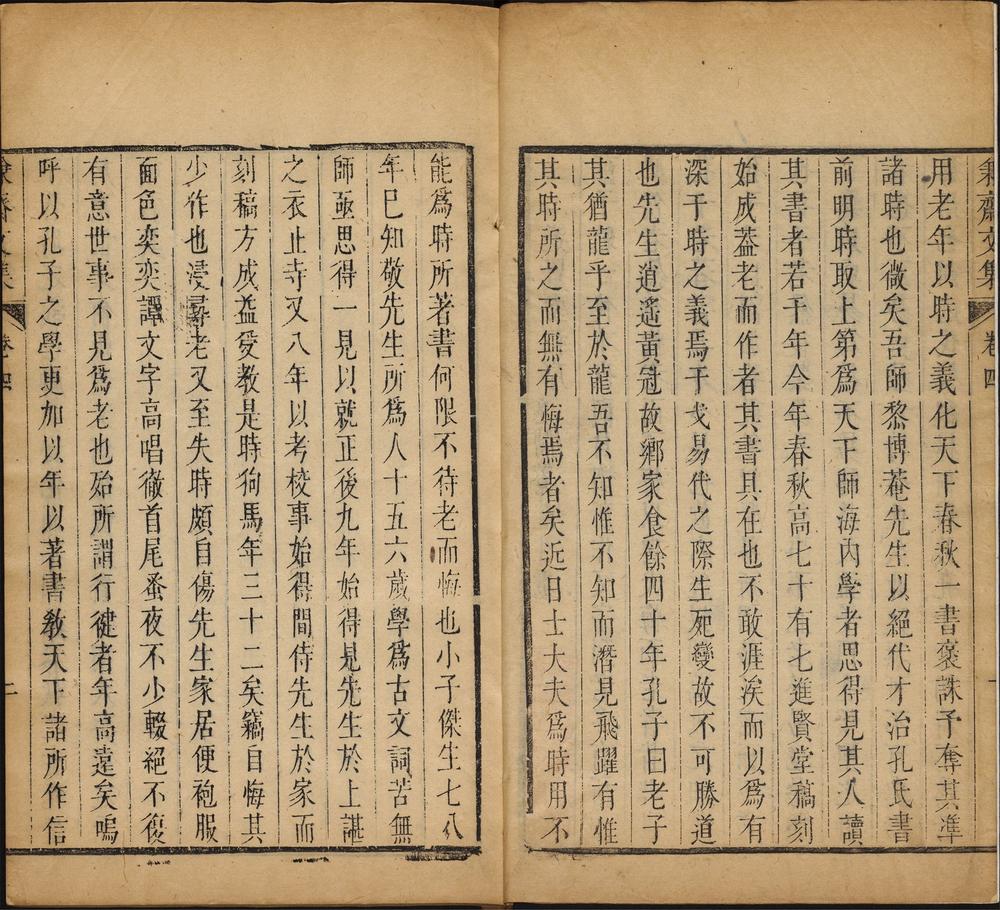 兼齋文集 卷四
用老年以時之義化天下春秋一書褒誅予奪其準
諸時也微矣吾師黎博菴先生以絕代才治孔氏書
前明時取上第爲天下師海內學者思得見其人讀
其書者若干年今年春秋高七十有七進賢堂稿刻
始成葢老而作者其書具在也不敢涯涘而以爲有
深于時之義焉干戈易代之際生死變故不可勝道
也先生逍遥黃冠故鄉家食餘四十年孔子曰老子
其猶龍乎至於龍吾不知惟不知而潛見飛躍有惟
其時所之而無有悔焉者矣近日士大夫爲時用不
能爲時所著書何限不待老而悔也小子傑生七八
年已知敬先生所爲人十五六歲學爲古文詞苦無
師亟思得一見以就正後九年始得見先生於上諶
之衣止寺又八年以考校事始得間侍先生於家而
刻稿方成益受教是時狗馬年三十二矣竊自悔其
少作也浸尋老又至失時頗自傷先生家居便袍服
面色奕奕譚文字高唱徹首尾蚤夜不少輟絕不復
有意世事不見爲老也殆所謂行健者年高遠矣嗚
呼以孔子之學更加以年以著書敎天下諸所作信
文集 卷四 二